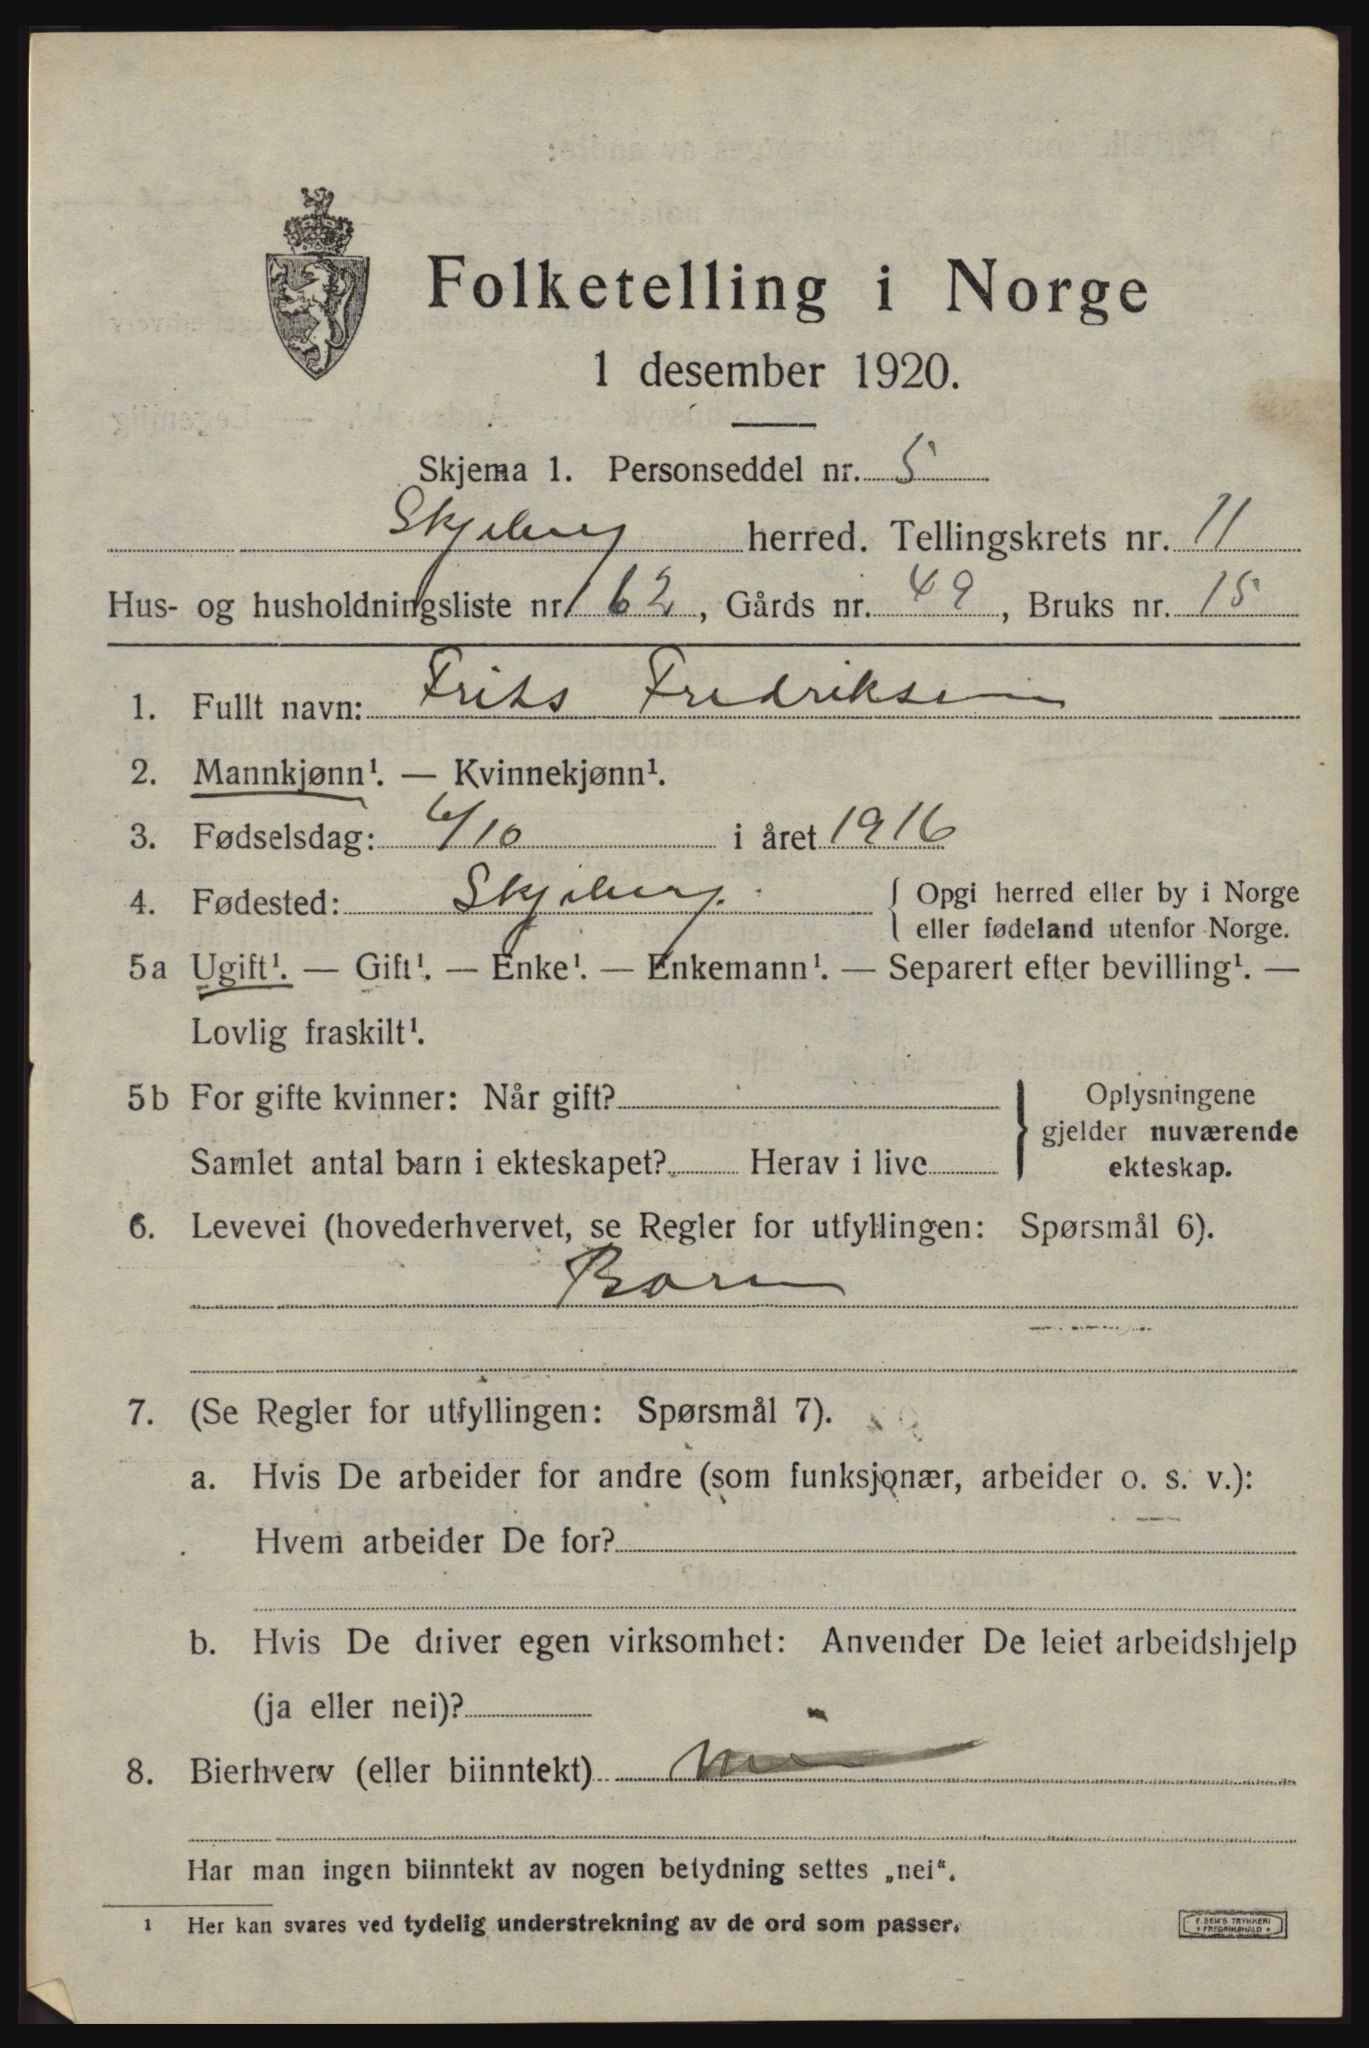 Folketelling i Norge
1 desember 1920.
Skjema 1. Personseddel nr. 5
Skjeberg herred. Tellingskrets nr. 11
Hus- og husholdningsliste nr. 62, Gårds nr. 49, Bruks nr. 15
1. Fullt navn: Frits Fredriksen
2. Mannkjønn¹. — Kvinnekjønn¹.
3. Fødselsdag: 6/10 i året 1916
4. Fødested: Skjeberg. { Opgi herred eller by i Norge
eller fødeland utenfor Norge.
5a Ugift¹. — Gift¹. — Enke¹. — Enkemann¹. — Separert efter bevilling¹. —
Lovlig fraskilt¹.
5b For gifte kvinner: Når gift?
Samlet antal barn i ekteskapet? Herav i live
} Oplysningene
gjelder nuværende
ekteskap.
6. Levevei (hovederhvervet, se Regler for utfyllingen: Spørsmål 6).
Barn
7. (Se Regler for utfyllingen: Spørsmål 7).
a. Hvis De arbeider for andre (som funksjonær, arbeider o. s. v.):
Hvem arbeider De for?
b. Hvis De driver egen virksomhet: Anvender De leiet arbeidshjelp
(ja eller nei)?
8. Bierhverv (eller biinntekt)
Har man ingen biinntekt av nogen betydning settes „nei“.
¹ Her kan svares ved tydelig understrekning av de ord som passer.
F. SEM'S TRYKKERI
* FREDRIKSHALD *